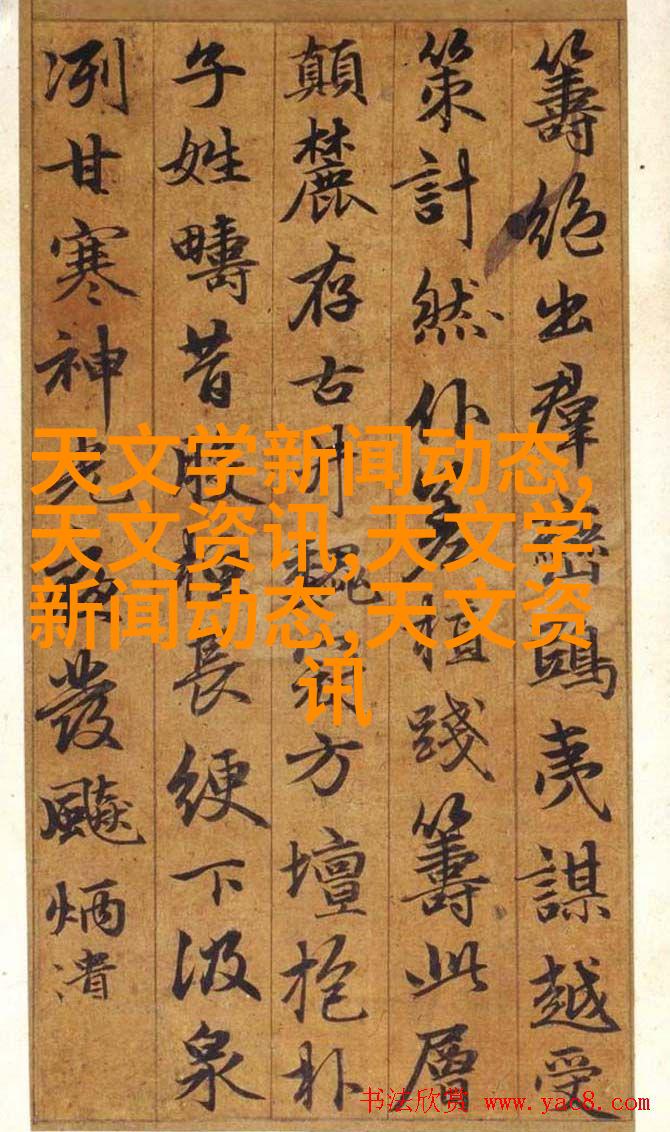 籌絕出羣夷謀越受
策計然籌此層
顛麓存古井方壇抱朴
子姓疇昔長綆下汲泉
冽甘寒神發飈炳
天文学新闻动态,
天文资讯,天文学
新闻动态,天文资
讯
书法欣赏 www.yac8.com